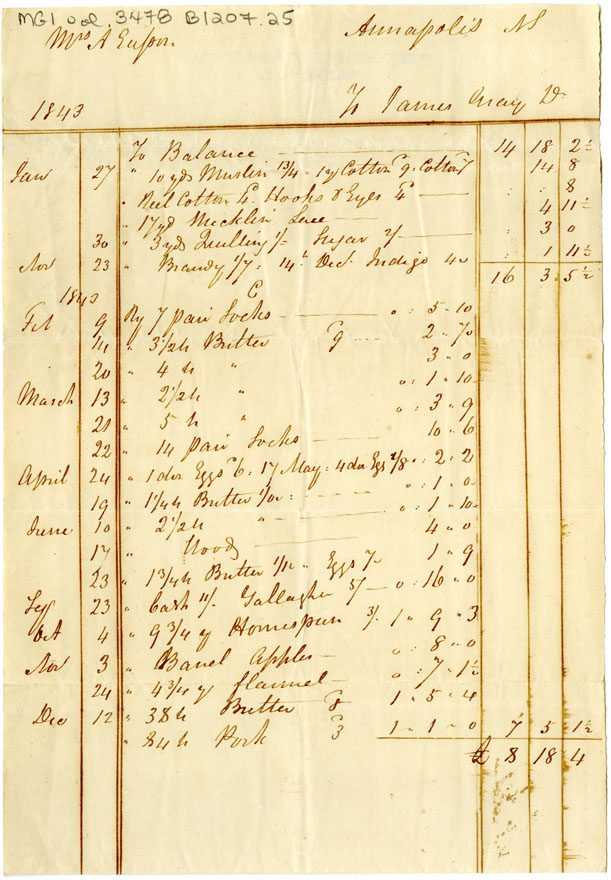 MG1 vol. 3478 B1207.25
Mrs A Annapolis NS
1843 To James May Dr
To Balance 14 18 2½
Jan 27 " 10 yds Muslin 1¾ - 1 yd Cotton 9 : Cotton 14 8
" Reel Cotton 4. Hooks & Eyes 4 8
" 17 yd Mecklin Lace 4 11½
30 " 3 yds Quilling 1/- Sugar 2/ 3 0
Nov 23 " Brandy 1/7 : 14th Dec. Indigo 4 1 11½
16 3 5½
1843 C
Feb 9 By 7 pair Socks 0 : 5 - 10
14 " 3½ lb Butter 9 2 - 7
20 " 4 lb " 3 - 0
March 13 " 2½ lb " 0 : 1 - 10
21 " 5 lb " 0 : 3 - 9
22 " 14 pair Socks 10 - 6
April 24 " 1 doz Eggs 6 : 17 May : 4 doz Eggs 1/8 0 : 2 - 2
19 " 1¼ lb Butter 0 : 1 - 0
June 10 " 2½ lb " 0 : 1 - 10
17 " Wood 4 - 0
23 " 1¾ lb Butter Eggs 7 1 - 9
Sep 23 " Cash 11/. Gallagher 5/ 0 : 16 - 0
Oct 4 " 9¾ y Homespun 3/. 1 - 9 - 3
Nov 3 " Barrel Apples 0 : 8 - 0
24 " 4¾ y flannel 0 : 7 - 1½
Dec 12 " 38 lb Butter 8 1 - 5 - 4
" 84 lb Pork 3 1 - 1 - 0 7 5 1½
£ 8 18 4